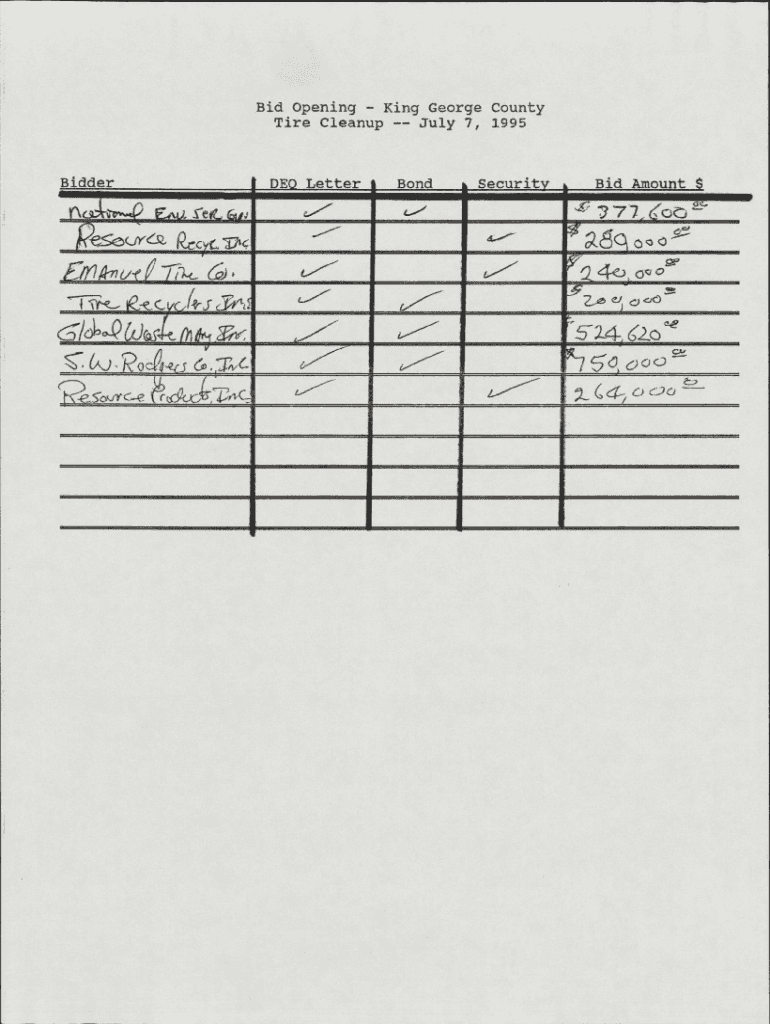 Bid Opening - King George County
Tire Cleanup -- July 7, 1995
Bidder DEQ Letter Bond Security Bid Amount $
National Env. Ser. ✓ ✓ $ 377,600 00
Resource Recyc. Inc ✓ ✓ $ 289,000 00
EMAnuel Tire Co. ✓ ✓ $ 240,000 00
Tire Recyclers ✓ ✓ $ 200,000 00
Global Waste May Inc. ✓ ✓ $ 524,620 00
S.W. Rodgers Co., Inc. ✓ ✓ $ 750,000 00
Resource Products, Inc. ✓ ✓ 264,000 00